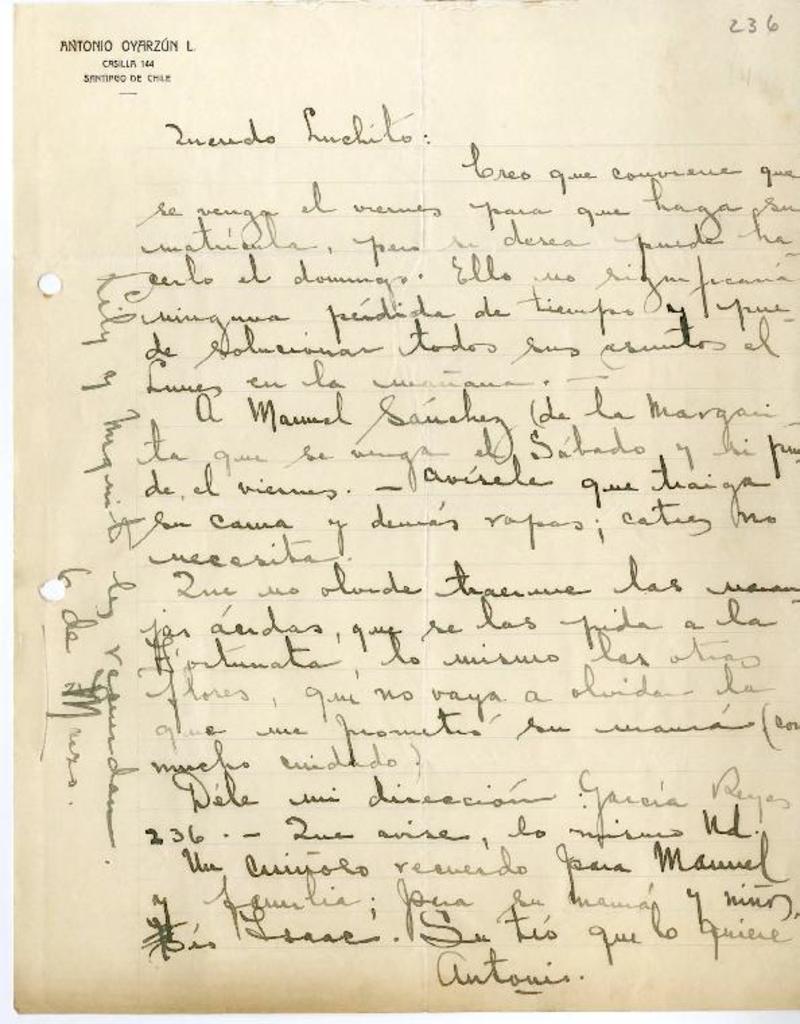 236
ANTONIO OYARZÚN L.
CASILLA 144
SANTIAGO DE CHILE
Querido Luchito:
Creo que conviene que
se venga el viernes para que haga su
matrícula, pero si desea puede ha
cerlo el domingo. Ello no significaría
ninguna pérdida de tiempo y pue-
de solucionar todos sus asuntos el
Lunes en la mañana. —
A Manuel Sánchez (de la Margari-
ta que se venga el Sábado y si pue
de, el viernes. — avísele que traiga
su cama y demás ropas; catres no
necesita.
Que no olvide traerme las naran-
jas ácidas, que se las pida a la
Fortunata, lo mismo las otras
flores, que no vaya a olvidar la
que me prometió su mamá (con
mucho cuidado)
Déle mi dirección: García Reyes
236. — Que avise, lo mismo Ud.
Un cariñoso recuerdo para Manuel
y familia; para su mamá y niños,
tío Isaac. Su tío que lo quiere
Antonio.
y les recuerdan.
6 de Marzo.